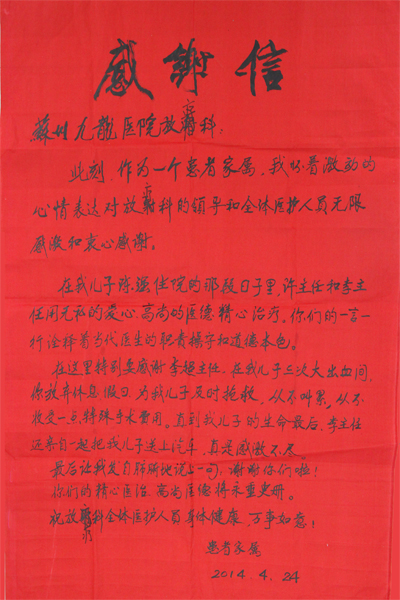 感谢信
蘇州九龍医院放疗科：
此刻作为一个患者家属，我怀着激动的
心情表达对放疗科的领导和全体医护人员无限
感激和衷心感谢。
在我儿子陈强住院的那段日子里，许主任和李主
任用无私的爱心，高尚的医德，精心治疗。你们的一言一
行诠释着当代医生的职责操守和道德本色。
在这里特别要感谢李超主任，在我儿子三次大出血间，
你放弃休息假日，为我儿子及时抢救，从不叫累，从不
收受一点特殊手术费用。直到我儿子的生命最后，李主任
还亲自一起把我儿子送上汽车，真是感激不尽。
最后让我发自肺腑地说上一句，谢谢你们啦！
你们的精心医治，高尚医德将永重史册。
祝放疗科全体医护人员身体健康，万事如意！
患者家属
2014.4.24